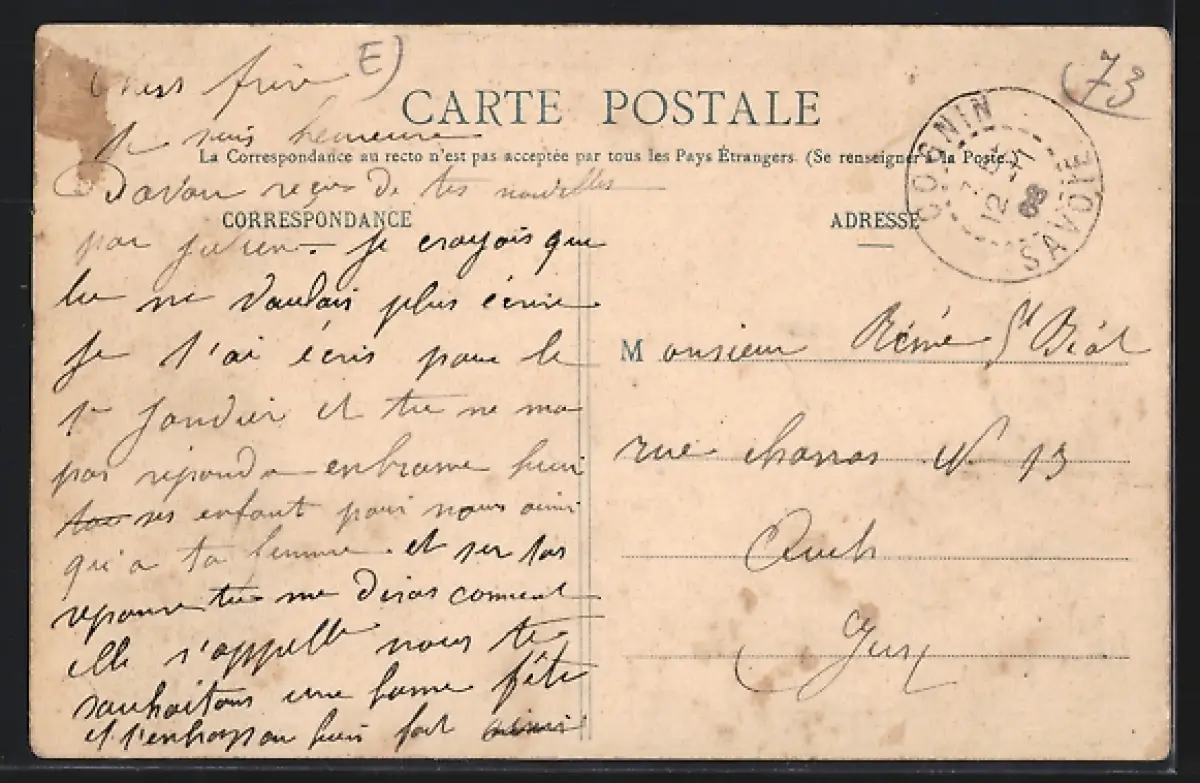 Cher frère E)
(73
CARTE POSTALE
je suis heureuse
La Correspondance au recto n'est pas acceptée par tous les Pays Étrangers (Se renseigner à la Poste.)
COGNIN
SAVOIE
12 08
D'avoir reçus De tes nouvelles
CORRESPONDANCE
ADRESSE
par Julien. Je croyais que
tu ne Voudais plus écrire
Je t'ai écris pour le
1er Janvier et tu ne ma
pas reponda enbrasse bien
ses enfant pour nous ainsi
qu'a ta femme. et sur tas
reponse tu me Diras comment
elle s'appelle nous te
souhaitons une bonne fête
et t'enbrasson bien fort
Monsieur Réné St Béat
rue charras N 13
Auch
Gers